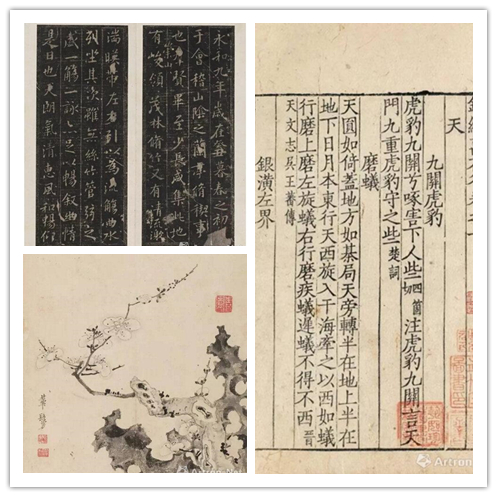 永和九年歲在癸丑暮春之初
于會稽山陰之蘭亭脩稧事
也群賢畢至少長咸集此地
有崇山峻領茂林脩竹又有清流激
湍暎帶左右引以為流觴曲水
列坐其次雖無絲竹管弦之
盛一觴一詠亦足以暢叙幽情
是日也天朗氣清惠風和暢仰
天
九關虎豹
虎豹九關兮啄害下人些四箇切注虎豹九關言天
門九重虎豹守之些楚詞
磨蟻
天圓如倚蓋地方如棊局天旁轉半在地上半在
地下日月本東行天西旋入于海牽之以西如蟻
行磨上磨左旋蟻右行磨疾蟻遲蟻不得不西晉
天文志吳王蕃傳
銀潢左界
Artron.Net